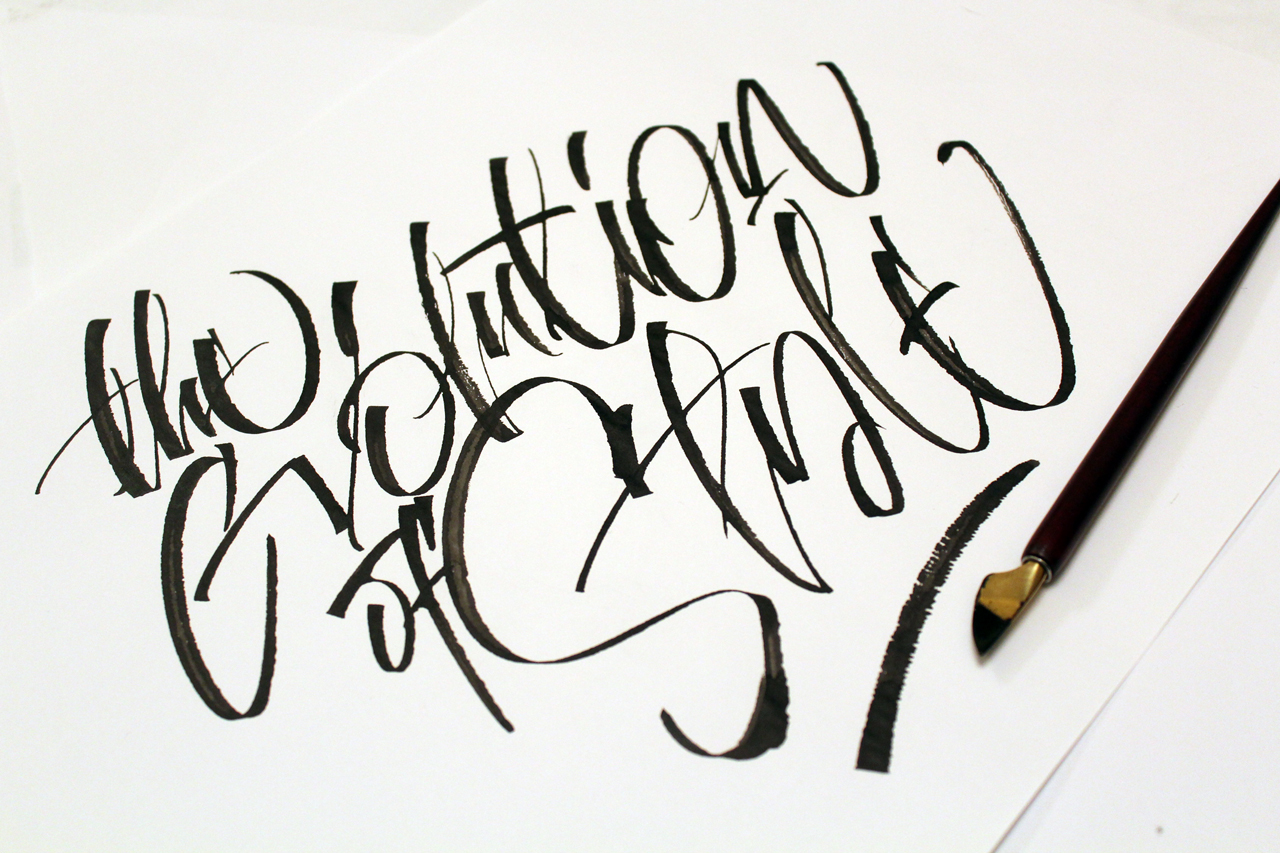 the
Evolution
of Style